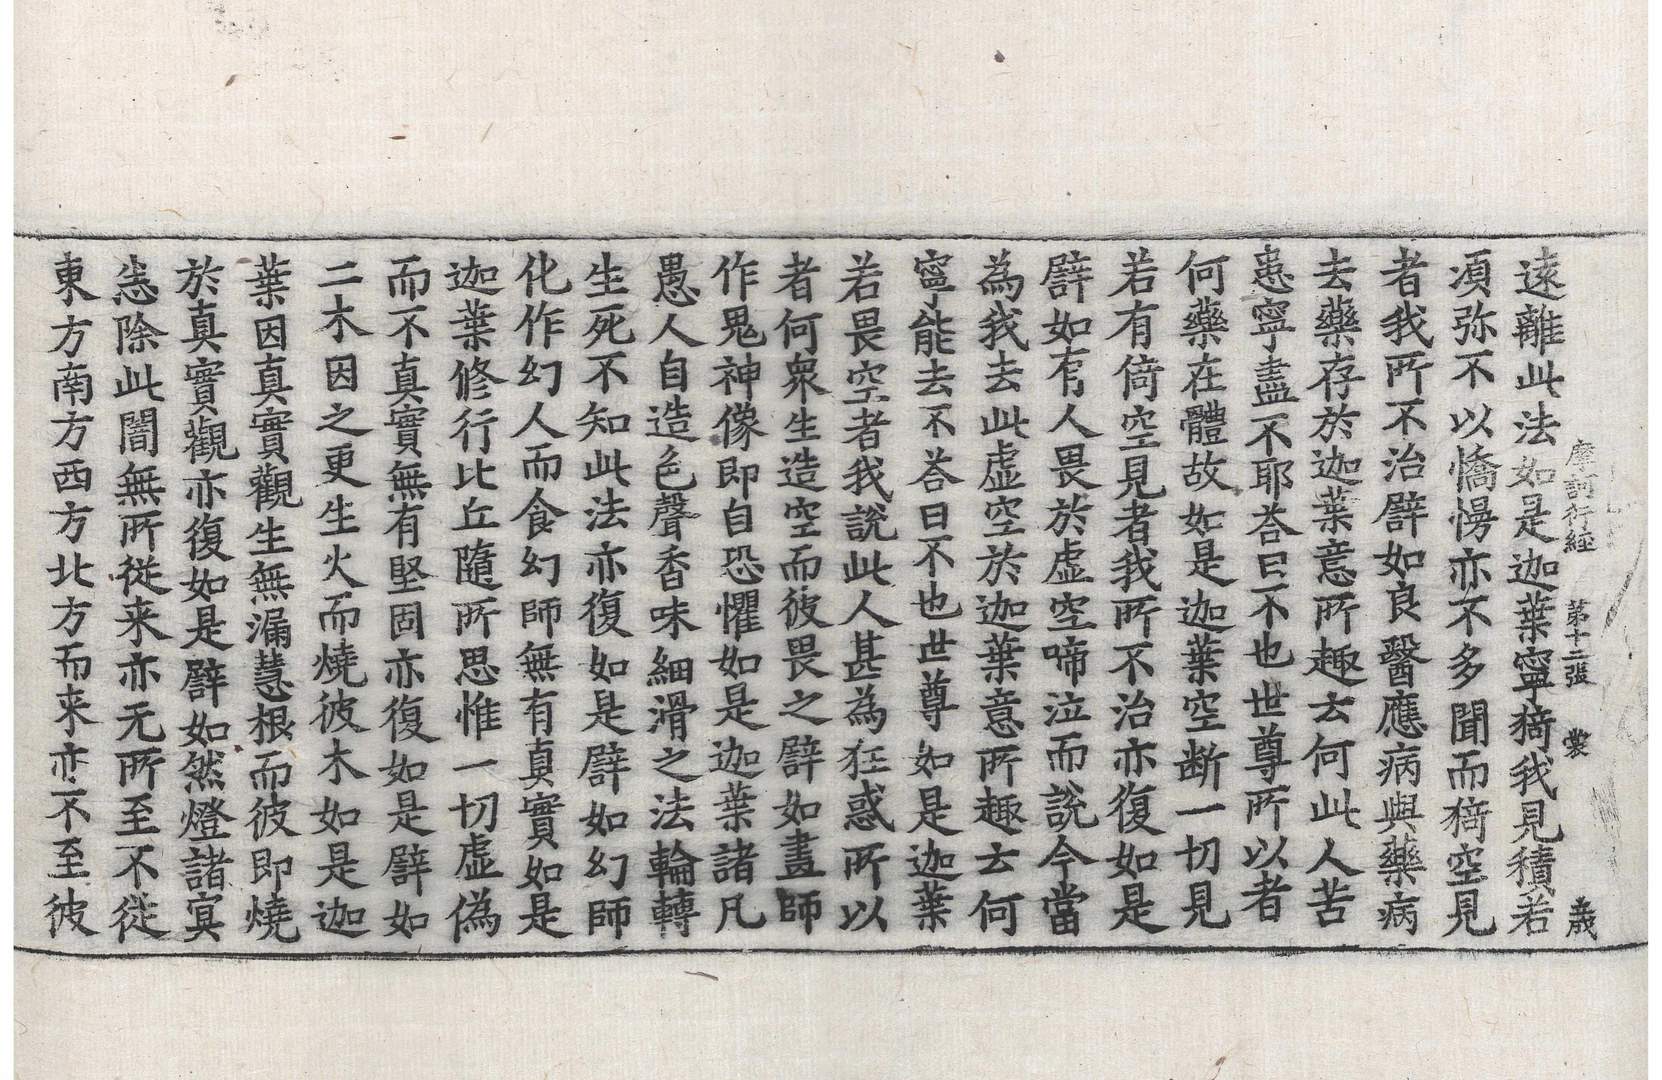 摩訶衍經 第十二張 裳 義
遠離此法如是迦葉寧猗我見積若
湏弥不以憍慢亦不多聞而猗空見
者我所不治譬如良醫應病與藥病
去藥存於迦葉意所趣云何此人苦
患寧盡不耶荅曰不也世尊所以者
何藥在體故如是迦葉空断一切見
若有倚空見者我所不治亦復如是
譬如有人畏於虚空啼泣而說今當
為我去此虚空於迦葉意所趣云何
寧能去不荅曰不也世尊如是迦葉
若畏空者我說此人甚為狂惑所以
者何衆生造空而彼畏之譬如畫師
作鬼神像即自恐懼如是迦葉諸凡
愚人自造色聲香味細滑之法輪轉
生死不知此法亦復如是譬如幻師
化作幻人而食幻師無有真實如是
迦葉修行比丘隨所思惟一切虚偽
而不真實無有堅固亦復如是譬如
二木因之更生火而燒彼木如是迦
葉因真實觀生無漏慧根而彼即燒
於真實觀亦復如是譬如然燈諸冥
悉除此闇無所從来亦无所至不從
東方南方西方北方而来亦不至彼